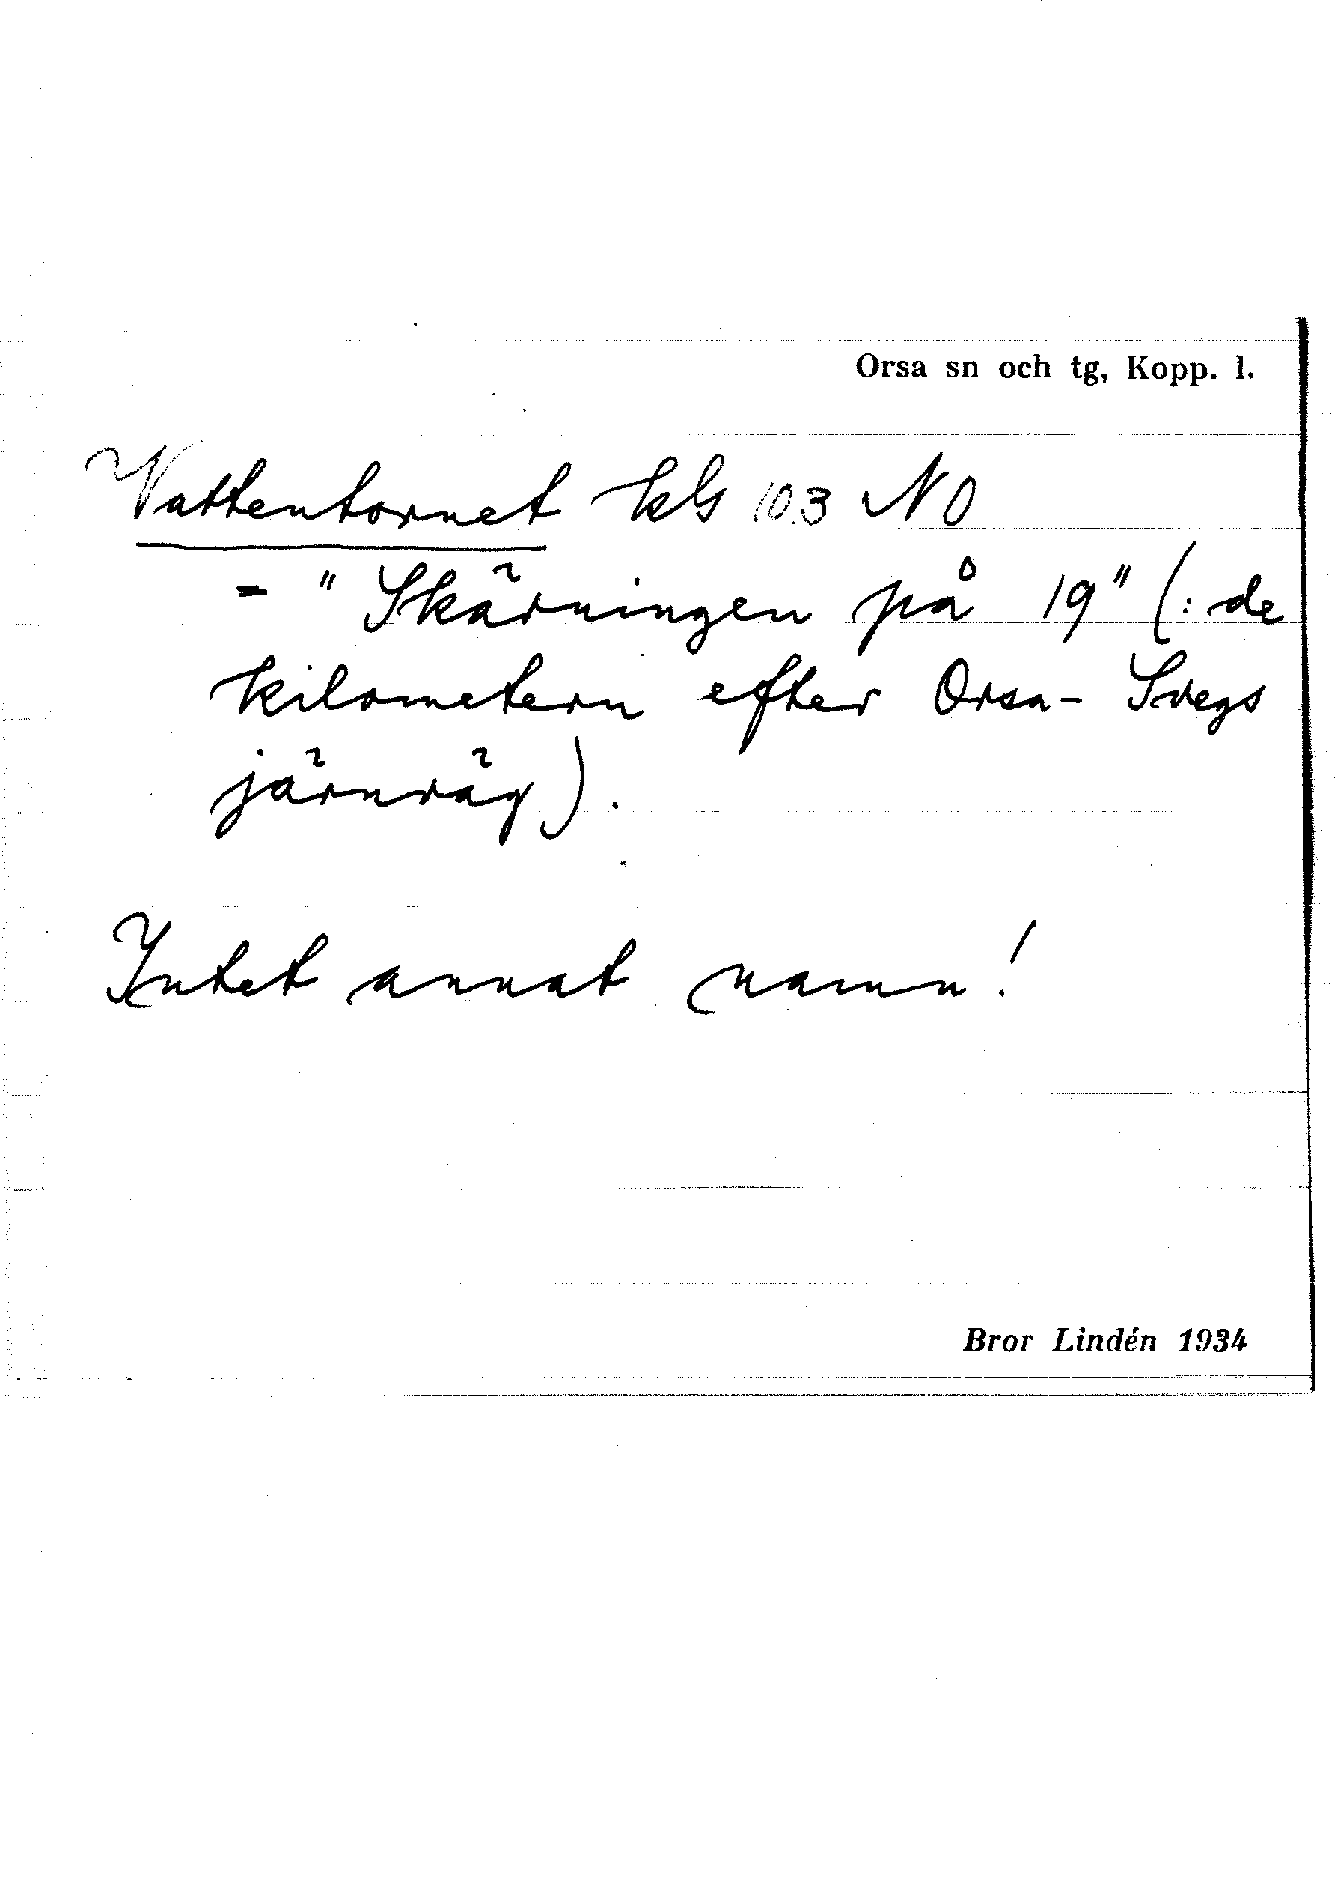 Orsa sn och tg, Kopp. l.
Vattentornet kls 103 NO
- "Skärningen på 19" (: de
kilometern efter Orsa- Svegs
järnväg).
Intet annat namn!
Bror Lindén 1934